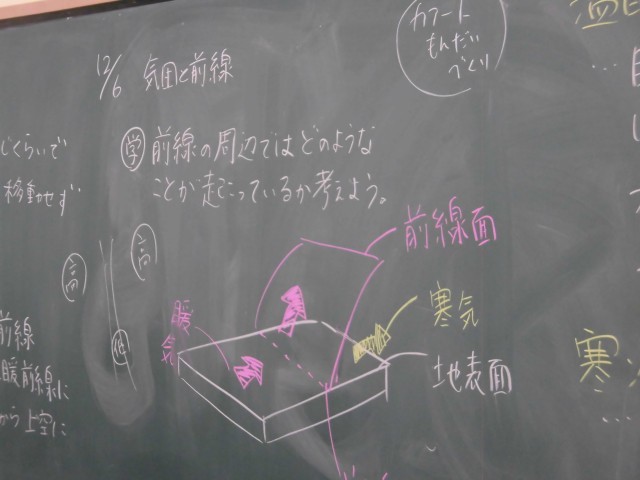 カワート
もんだい
づくり
12/6 気団と前線
学 前線の周辺ではどのような
ことが起こっているか考えよう。
じくらいで
移動せず
高
高
低
前線面
暖気
寒気
地表面
前線
暖前線に
から上空に
温
寒